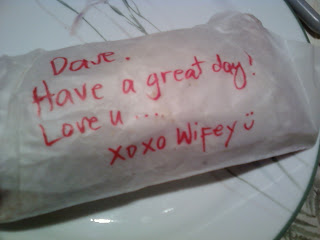 Dave.
Have a great day!
Love u ....
xoxo Wifey ü